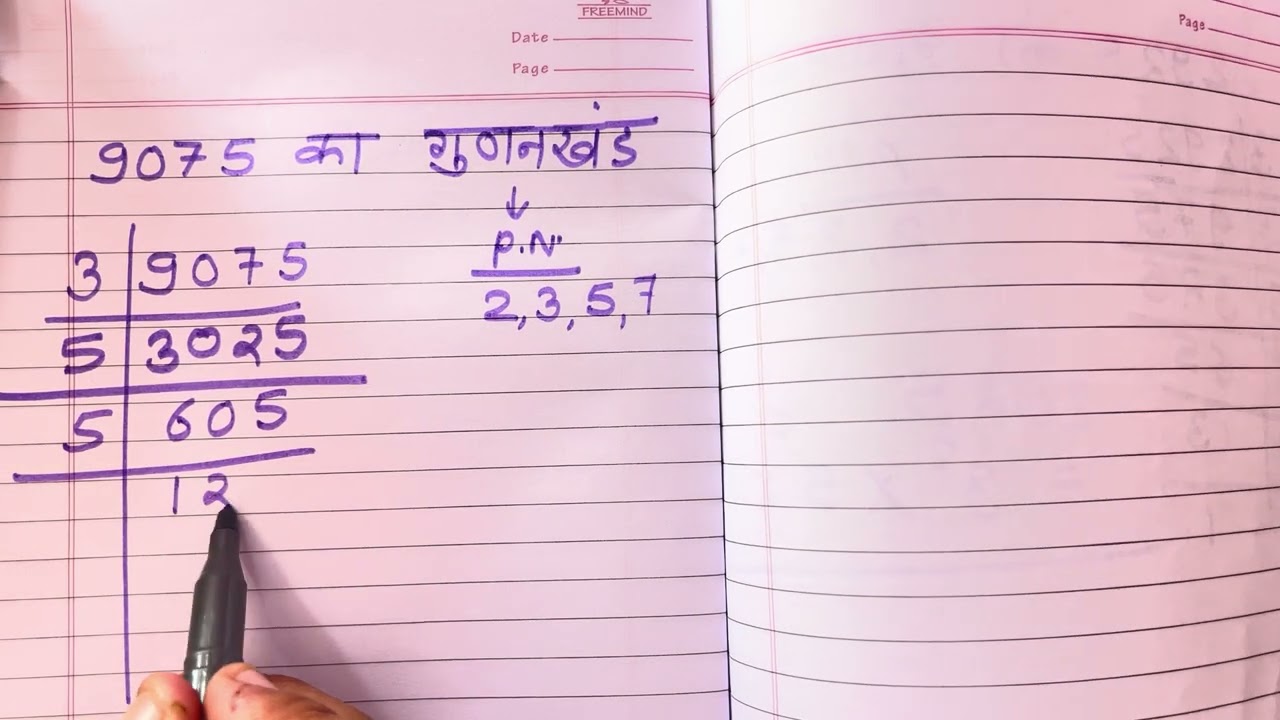 FREEMIND
Date
Page
Page
9075 का गुणनखंड
↓
P.N.
2,3,5,7
3 9075
5 3025
5 605
12